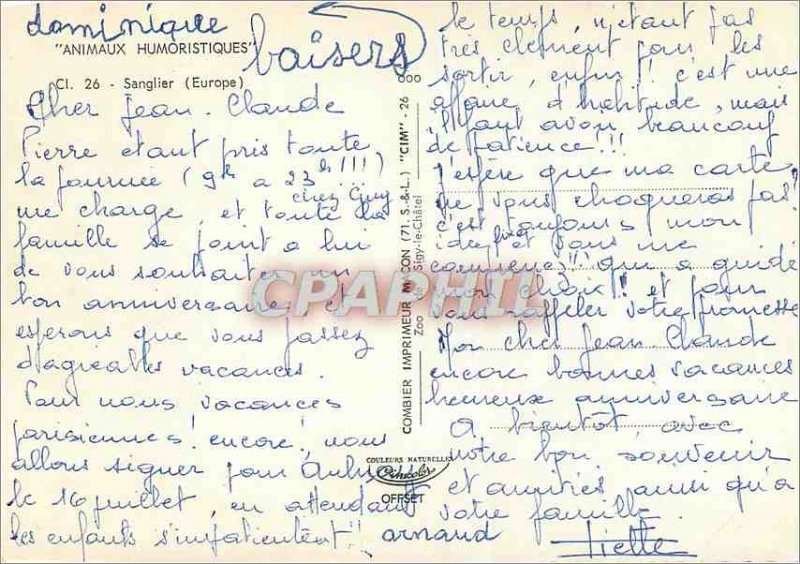 dominique
"ANIMAUX HUMORISTIQUES"
baisers
Cl. 26 - Sanglier (Europe)
Cher Jean-Claude
Pierre etant pris toute
la journée (9h a 23h!!!)
chez Ciny
me charge, et toute la
famille se joint a lui
de vous souhaiter un
bon anniversaire et
esperons que vous passez
d'agréables vacances.
Pour nous, vacances
parisiennes! encore, nous
allons signer pour
le 16 juillet, en attendant
les enfants s'impatientent!!
arnaud
COMBIER IMPRIMEUR MACON (71. S.-&-L.) "CIM" - 26
Zoo de Sigy-le-Châtel
COULEURS NATURELLES
OFFSET
CPAPHIL
le temps, n'étant pas
très clément pour les
sortir, enfin! c'est une
affaire d'habitude, mais
il faut avoir beaucoup
de patience!!!
J'espère que ma carte
ne vous choquera pas!
c'est toujours mon
idée et vous me
connaissez!! qui a guidé
mon choix! et pour
vous rappeler votre promesse
Mon cher Jean-Claude
encore bonnes vacances
heureux anniversaire
A bientôt, avec
notre bon souvenir
et amitiés ainsi qu'a
votre famille.